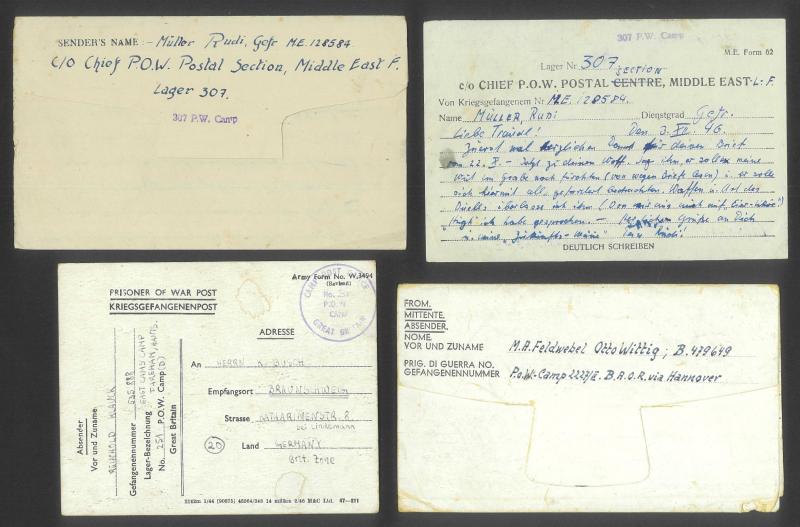 SENDER'S NAME :- Müller Rudi, Gefr M.E. 128584
c/o Chief P.O.W. Postal Section, Middle East F.
Lager 307.
307 P.W. Camp
307 P.W. Camp
M.E. Form 62
Lager Nr. 307 SECTION
c/o CHIEF P.O.W. POSTAL CENTRE, MIDDLE EAST L. F.
Von Kriegsgefangenem Nr. M.E. 128584.
Name MÜLLER, RUDI Dienstgrad Gefr.
Liebe Traudl! Den 3. XI. 46.
Zuerst mal herzlichen Dank für deinen Brief
vom 22. X. - Jetzt zu deinem Wolf. Sag ihm, er soll meine
Wut im Grabe noch fürchten (von wegen Briefe lesen) u. er solle
sich hiermit als gefordert betrachten. Waffen u. Art des
Duells überlasse ich ihm
ich habe gesprochen. - Herzlichen Grüße an Dich
u. meine Rudi!
DEUTLICH SCHREIBEN
PRISONER OF WAR POST
KRIEGSGEFANGENENPOST
Army Form No. W.3494
(Revised)
CAMP POST OFFICE
No. 251
P.O.W
CAMP
GREAT BRITAIN
ADRESSE
An HERRN K. BUSCH
Empfangsort BRAUNSCHWEIG
Strasse KATHARINENSTR. 2.
bei Lindemann
20 Land GERMANY
Brit. Zone
Absender
Vor und Zuname:
REINHOLD
Gefangenennummer
Lager-Bezeichnung EAST CAMS CAMP
FAREHAM, HANTS.
No. 251 P.O.W. Camp (D)
Great Britain
FROM.
MITTENTE.
ABSENDER.
NOME.
VOR UND ZUNAME M.A. Feldwebel Otto Wittig ; B. 479649
PRIG. DI GUERRA NO.
GEFANGENENNUMMER P.o.W.-Camp 2227/E. B.A.O.R. via Hannover